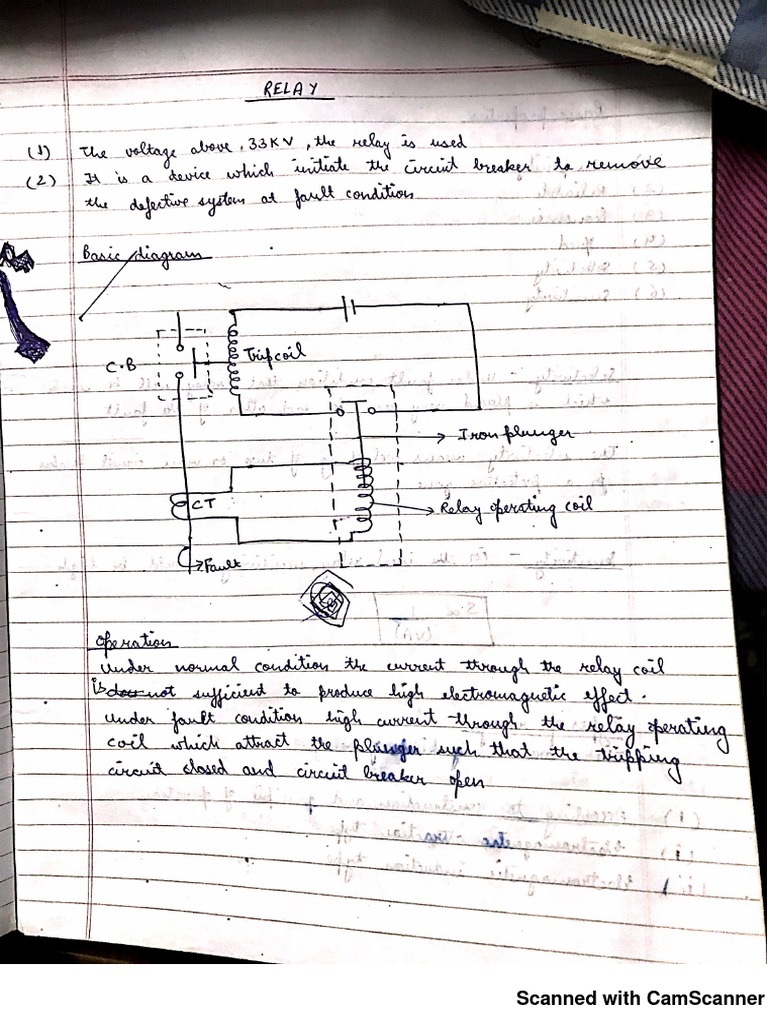 RELAY
(1) The voltage above, 33KV, the relay is used
(2) It is a device which initiate the circuit breaker to remove
the defective system at fault condition
Basic diagram
Trip coil
C.B
Iron plunger
CT
Relay operating coil
Fault
Operation
Under normal condition the current through the relay coil
is not sufficient to produce high electromagnetic effect.
Under fault condition high current through the relay operating
coil which attract the plunger such that the tripping
circuit closed and circuit breaker open
Scanned with CamScanner